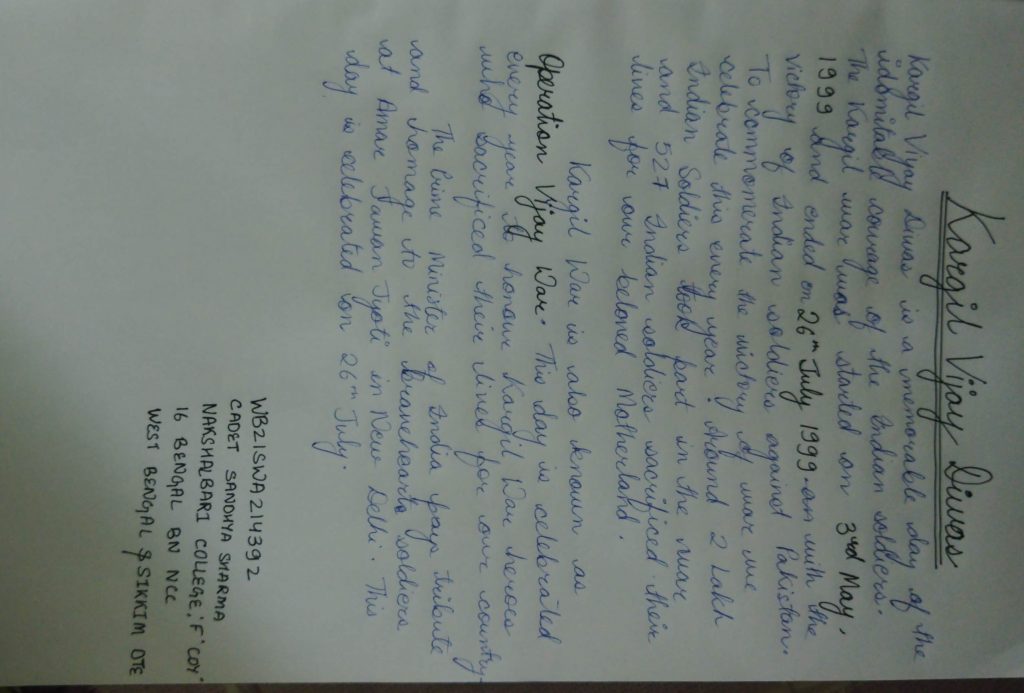 Kargil Vijay Diwas
Kargil Vijay Diwas is a memorable day of the
idomitable courage of the Indian soldiers.
The Kargil war was started on 3rd May,
1999 and ended on 26th July 1999 with the
victory of Indian soldiers against Pakistan.
To commomerate the victory of war we
celebrate this every year. Around 2 Lakh
Indian Soldiers took part in the war
and 527 Indian soldiers sacrificed their
lives for our beloved Motherland.
Kargil War is also known as
Operation Vijay War. This day is celebrated
every year to honour Kargil War heroes
who sacrificed their lives for our country
The Prime Minister of India pays tribute
and homage to the bravehearts soldiers
at Amar Jawan Jyoti in New Delhi. This
day is celebrated on 26th July.
WB21SWA214392
CADET SANDHYA SHARMA
NAKSHALBARI COLLEGE, 'F' COY
16 BENGAL BN NCC
WEST BENGAL & SIKKIM DTE